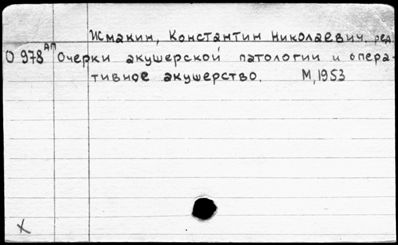 Жмакин, Константин Николаевич. ред.
О 978 АП Очерки акушерской патологии и опера-
тивное акушерство. М, 1953
X